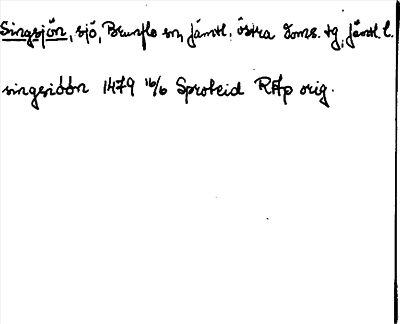 Singsjön, sjö, Brunflo sn, Jämtl. östra doms. tg, Jämtl. l.
singesiöön 1479 16/6 Sproteid RAp orig.